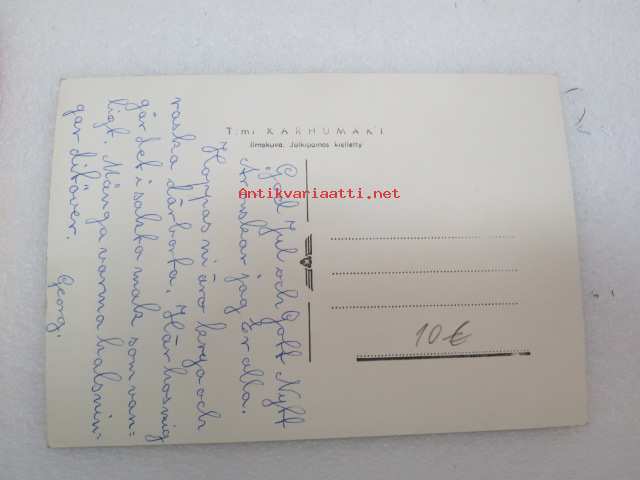 T:mi KARHUMÄKI
Ilmakuva. Julkipanos kielletty
Antikvariaatti.net
God Jul och Gott Nytt
År önskar jag Er alla.
Hoppas ni äro krya och
raska därborta. Här hos mig
går det i sakta mak som van-
ligt. Många varma hälsnin-
gar ditöver.
Georg.
10 €